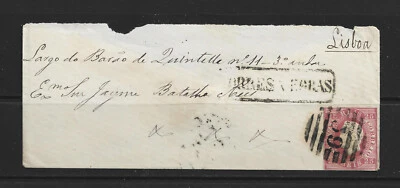 Lisboa
Largo do Barão de Quintella nº 11 - 3º andar
TORRES VEDRAS
Exmo Snr Jayme Batalha Reis